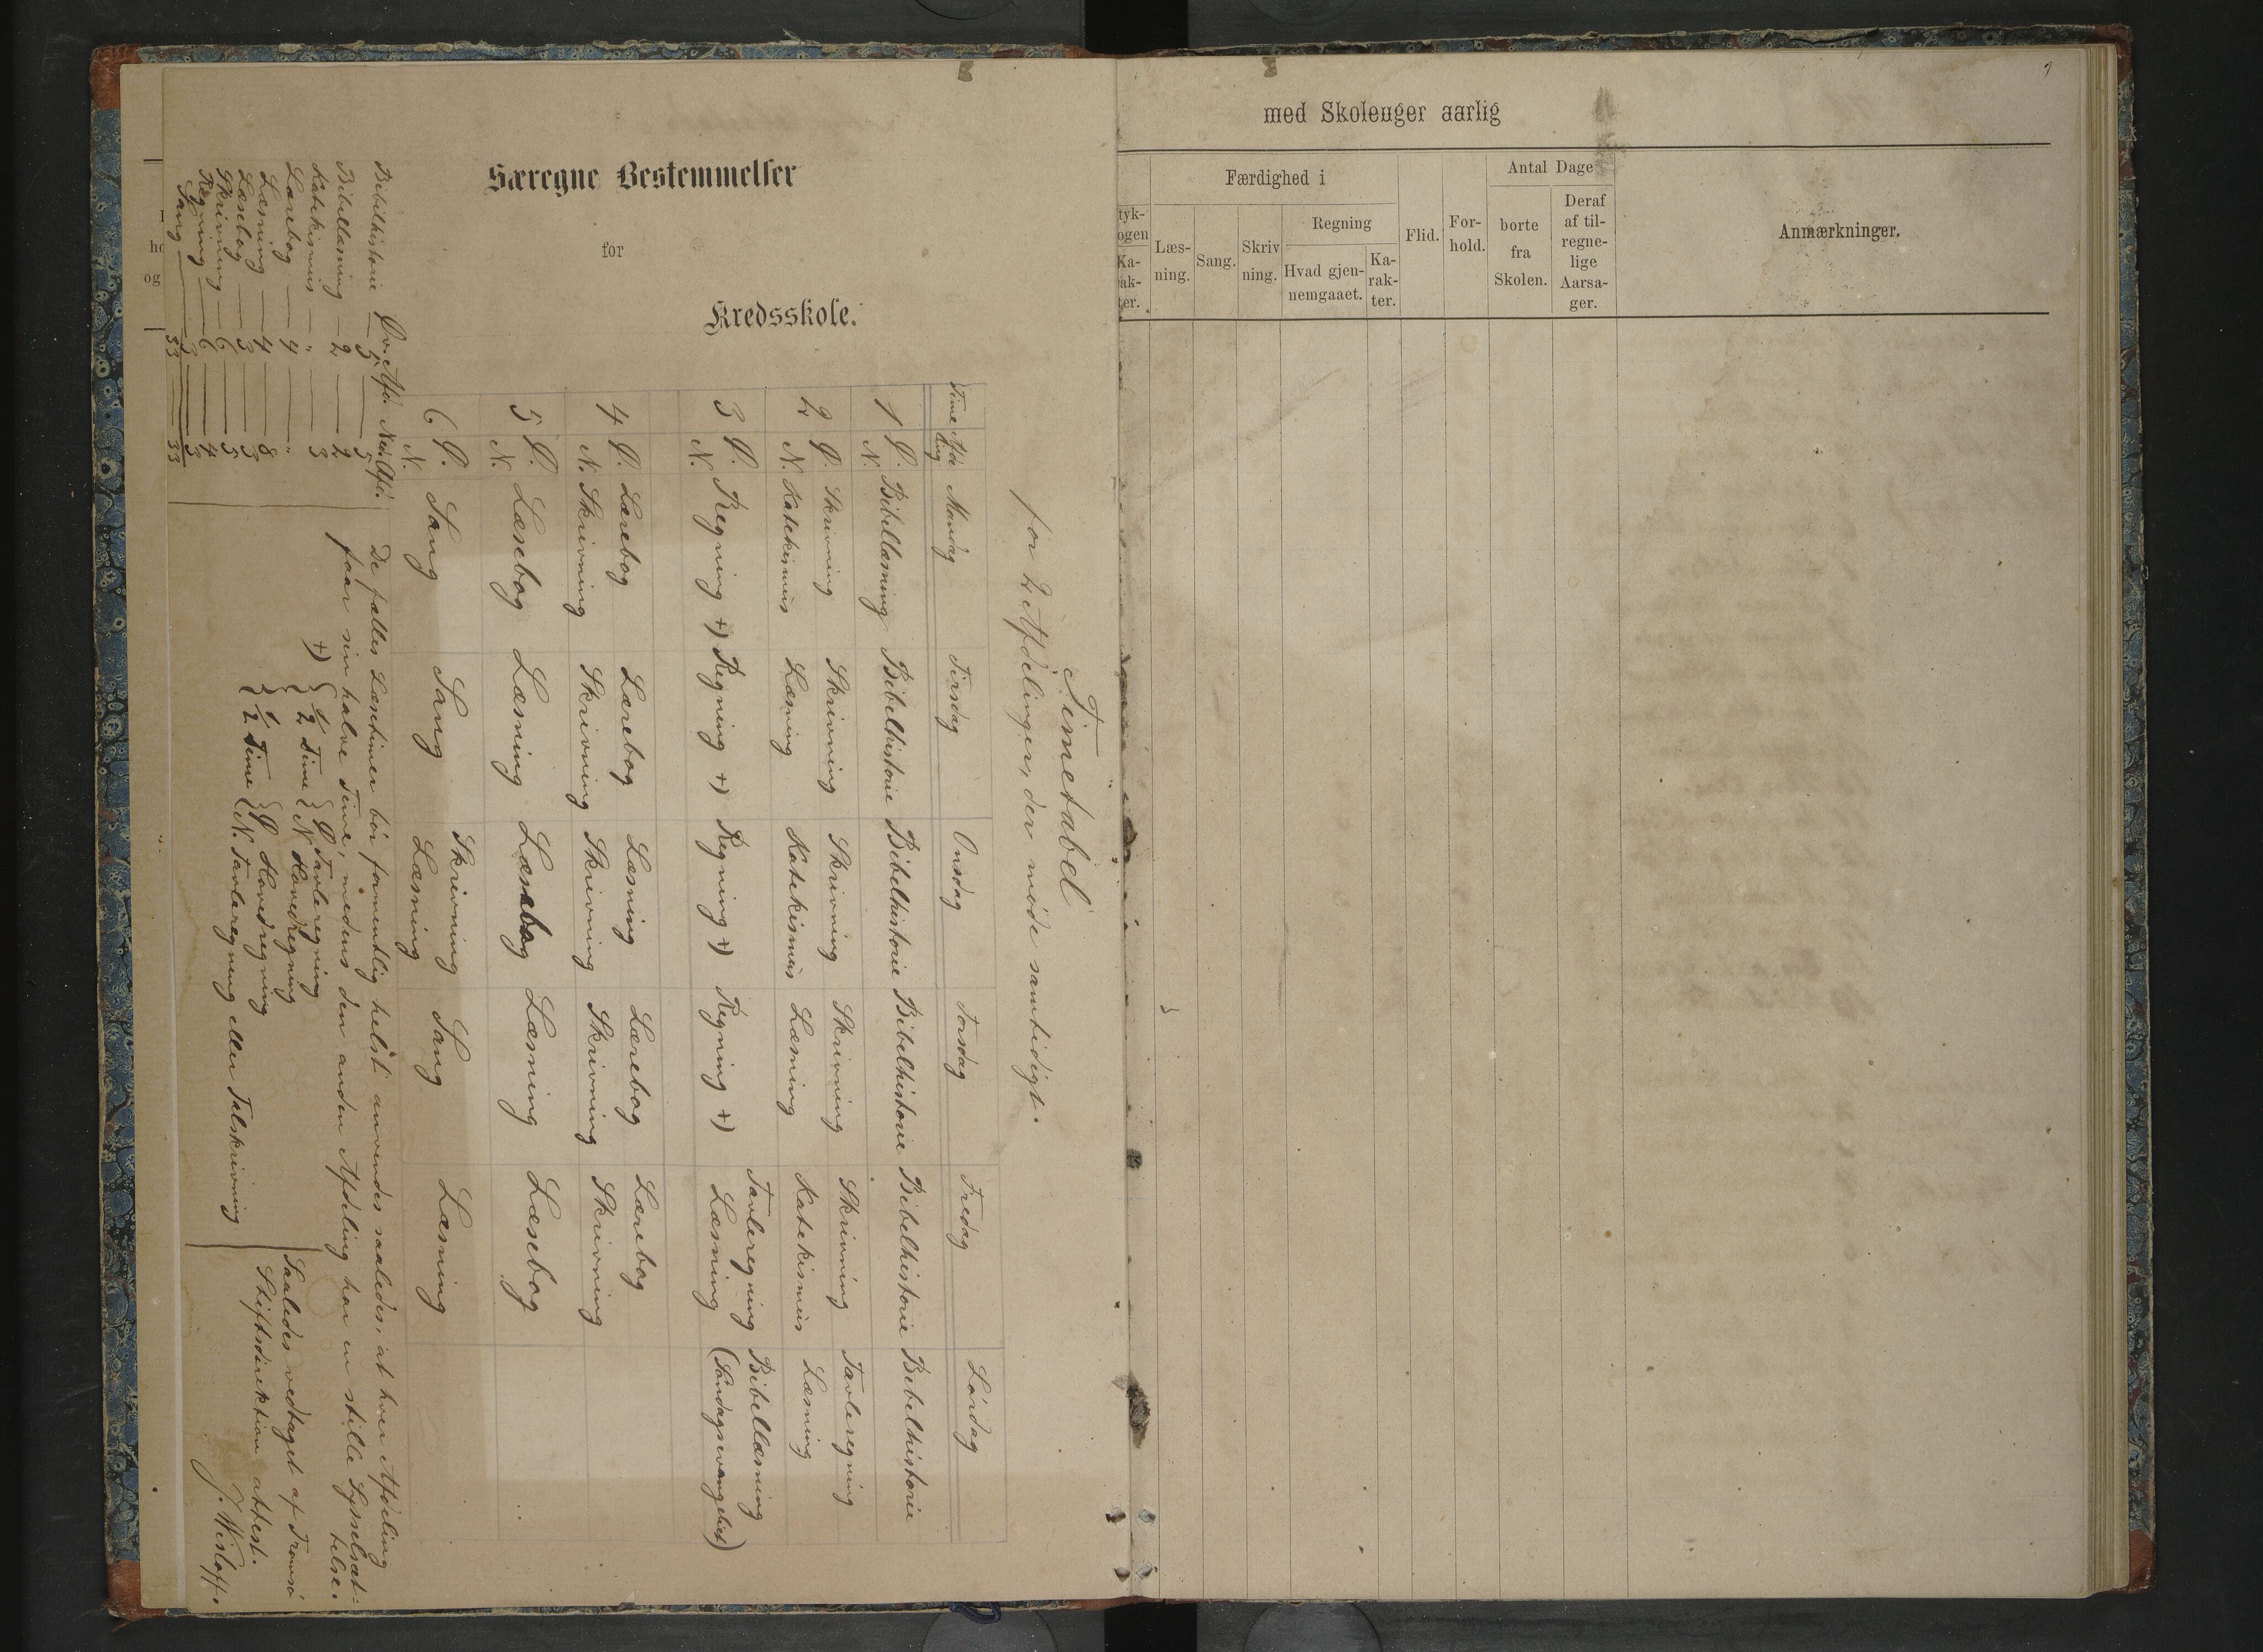 Særegne Bestemmelser
for
Kredsskole.
Timetabel
for 2 Afdelinger, der møde samtidigt.
Time Afdeling Mandag Tirsdag Onsdag Torsdag Fredag Lørdag
1 Ø. N. Bibellæsning Bibelhistorie Bibelhistorie Bibelhistorie Bibelhistorie Bibelhistorie
2 Ø. Skrivning Skrivning Skrivning Skrivning Skrivning Tavleregning
N. Katekismus Læsning Katekismus Læsning Katekismus Læsning
3 Ø. Regning +) Regning +) Regning +) Regning +) Tavleregning Bibellæsning
N. Læsning (Søndagsevangeliet)
4 Ø. Lærebog Lærebog Læsning Lærebog Lærebog
N. Skrivning Skrivning Skrivning Skrivning Skrivning
5 Ø. N. Læsebog Læsning Læsebog Læsning Læsebog
6 Ø. Sang Sang Skrivning Sang Læsning
N. Læsning
Øv. Afd. Ned. Afd.
Bibelhistorie — 5 — 5
Bibellæsning — 2 — 2
Katekismus — " — 3
Lærebog — 4 — "
Læsning — 4 — 8
Læsebog — 3 — 3
Skrivning — 6 — 5
Regning — 6 — 4
Sang — 3 — 3
33 — 33
De fælles Læsetimer bør fornemlig helst anvendes saaledes, at hver Afdeling
faar sin halve Time, medens den anden Afdeling har en stille Sysselsættelse.
+) { 1/2 Time { Ø Tavleregning
N Hovedregning
{ 1/2 Time { Ø. Hovedregning
N. Tavleregning eller Talskrivning
Saaledes vedtaget af Tromsø
Stiftsdirektion attest.
J. Wisløff.
ho
og
med Skolenger aarlig
tyk-
ogen
Ka-
rak-
ter.
Færdighed i
Læs-
ning.
Sang.
Skriv
ning.
Regning
Hvad gjen-
nemgaaet.
Ka-
rak-
ter.
Flid.
For-
hold.
Antal Dage
borte
fra
Skolen.
Deraf
af til-
regne-
lige
Aarsa-
ger.
Anmærkninger.